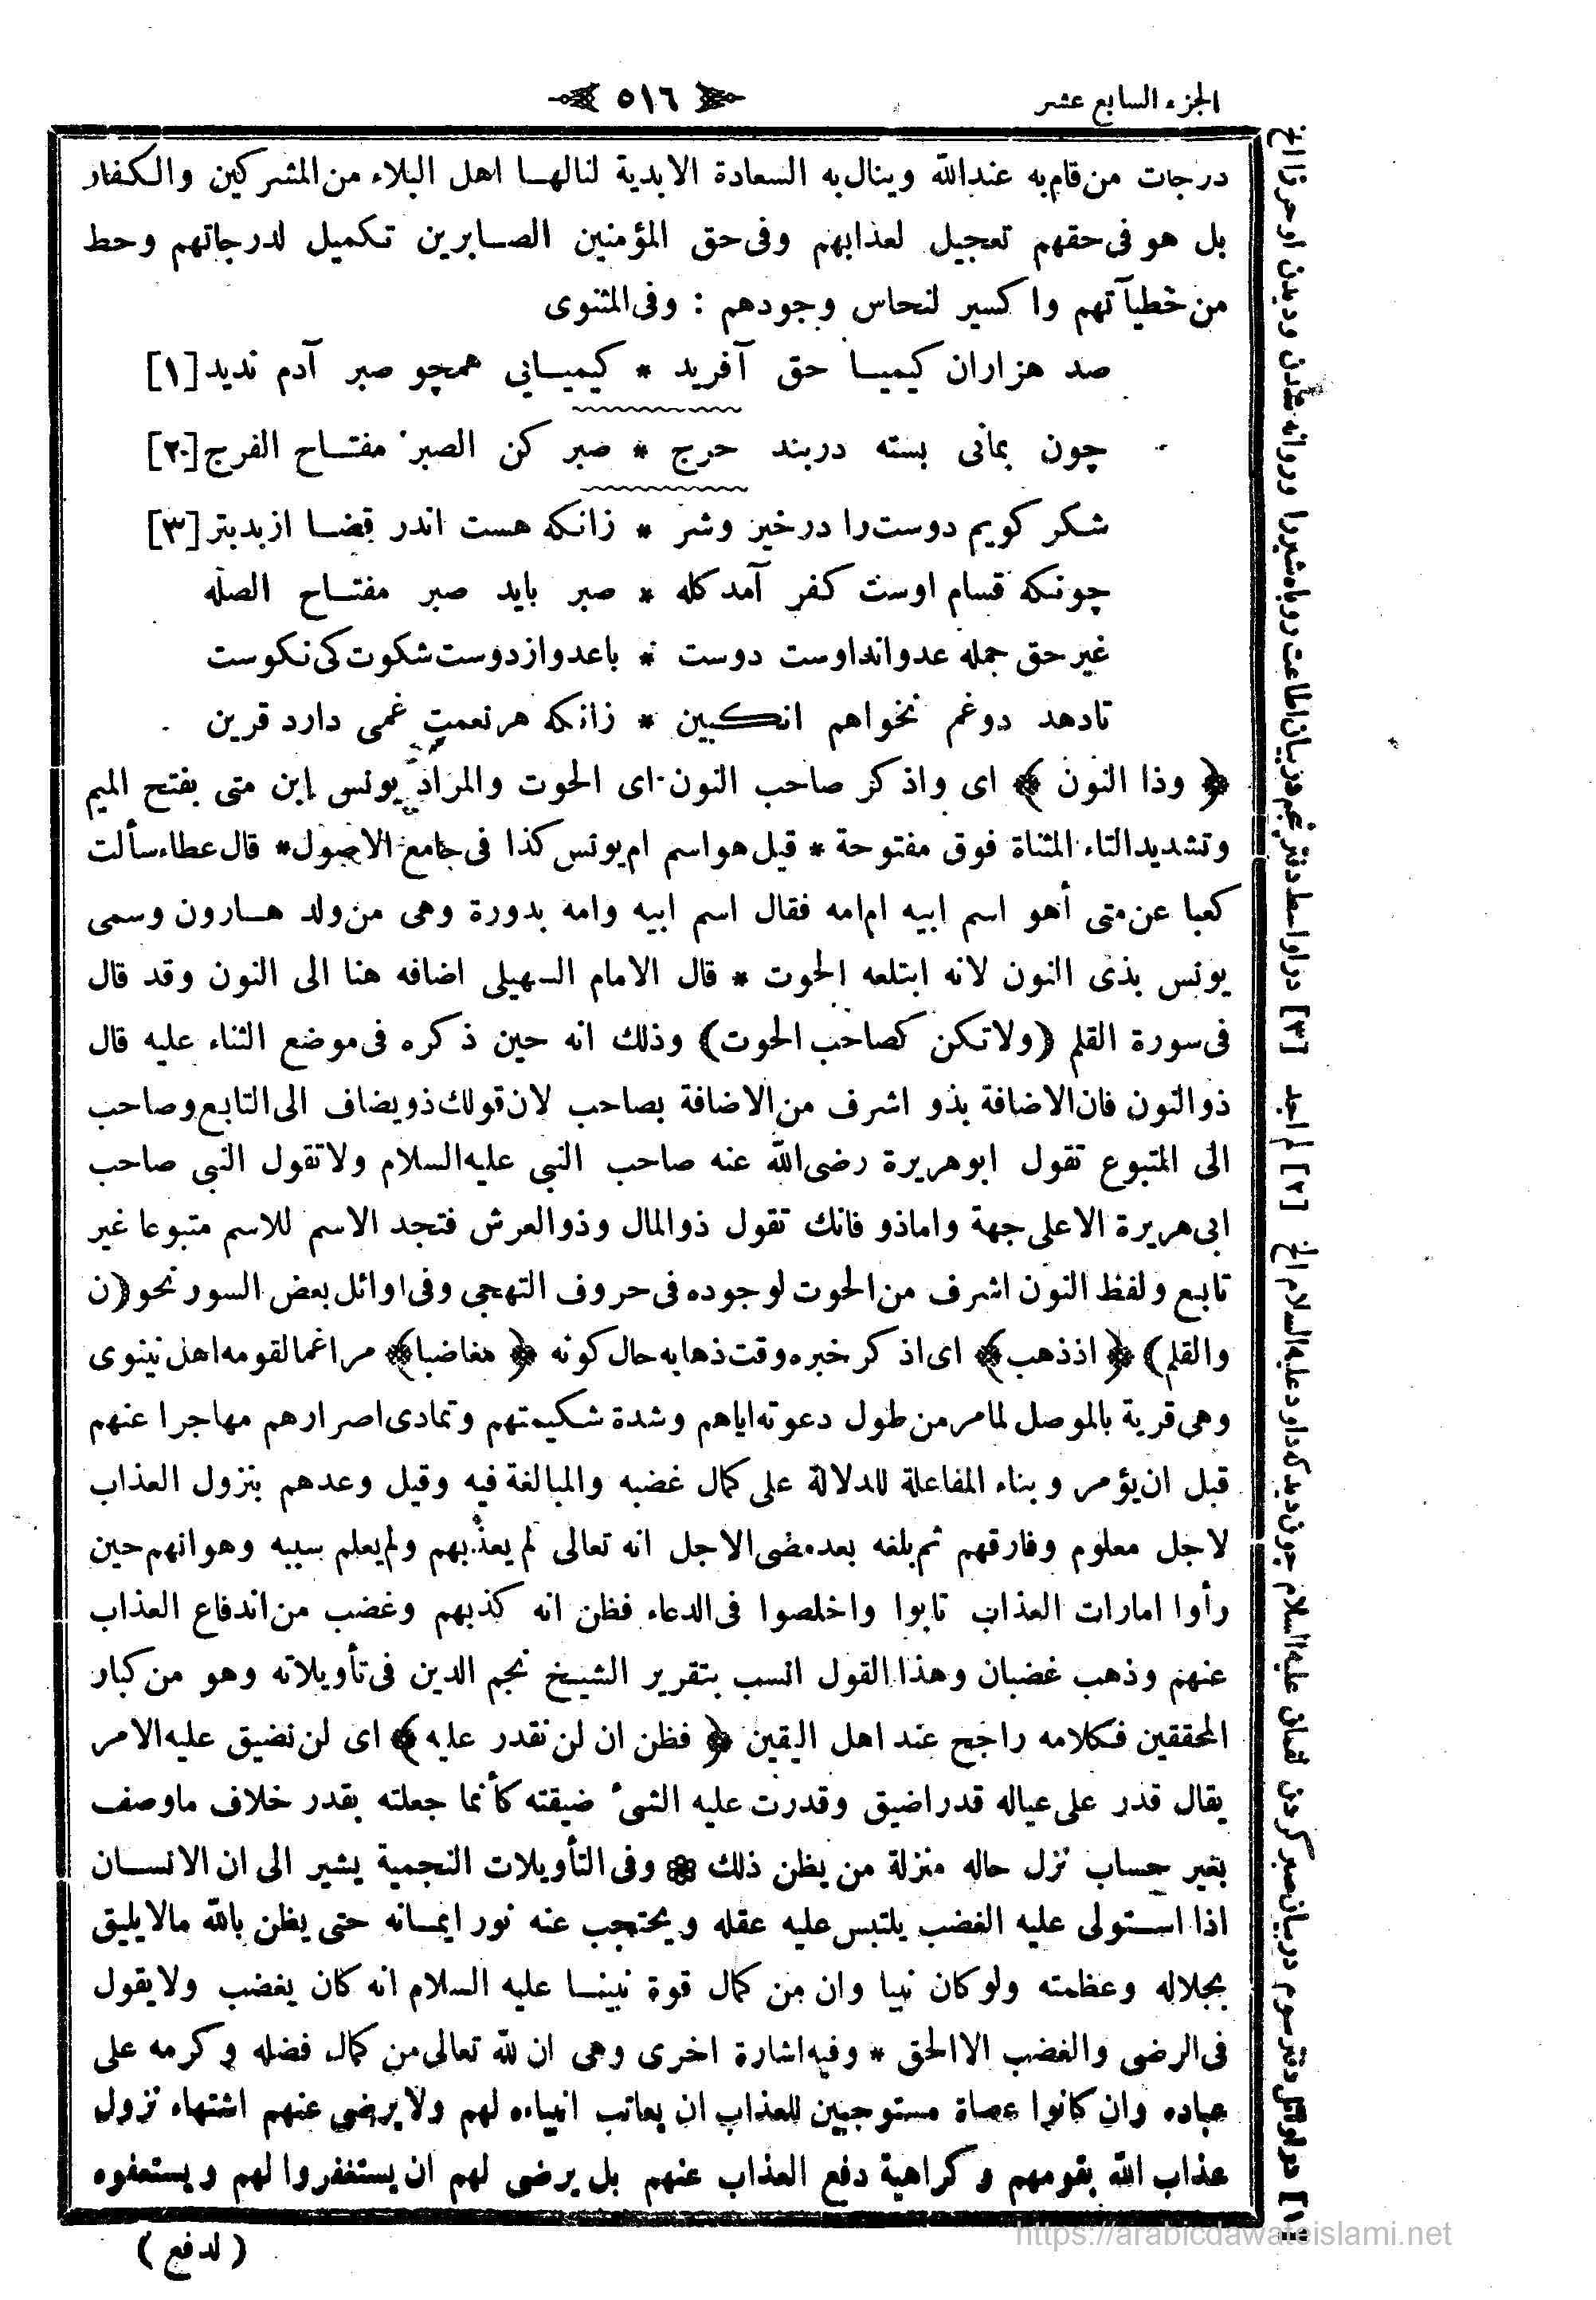 الجزء السابع عشر
٥١٦
درجات من قام به عند الله وينال به السعادة الابدية لنالها اهل البلاء من المشركين والكفار
بل هو فى حقهم تعجيل لعذابهم وفى حق المؤمنين الصابرين تكميل لدرجاتهم وحط
من خطيآتهم واكسير لنحاس وجودهم : وفى المثنوى
صد هزاران كيميا حق آفريد * كيميايى همچو صبر آدم نديد [١]
چون بمانى بسته در بند حرج * صبر كن الصبر مفتاح الفرج [٢]
شكر كويم دوست را در خير وشر * زانكه هست اندر قضا از بد بتر [٣]
چونكه قسام اوست كفر آمد كله * صبر بايد صبر مفتاح الصله
غير حق جمله عدواند اوست دوست * باعدو از دوست شكوت كى نكوست
تادهد دوغم نخواهم انكبين * زانكه هر نعمت غمى دارد قرين
﴿ وذا النون ﴾ اى واذكر صاحب النون اى الحوت والمراد يونس ابن متى بفتح الميم
وتشديد التاء المثناة فوق مفتوحة * قيل هو اسم ام يونس كذا فى جامع الاصول * قال عطاء سألت
كعبا عن متى أهو اسم ابيه ام امه فقال اسم ابيه وامه بدورة وهى من ولد هارون وسمى
يونس بذى النون لانه ابتلعه الحوت * قال الامام السهيلى اضافه هنا الى النون وقد قال
فى سورة القلم (ولا تكن كصاحب الحوت) وذلك انه حين ذكره فى موضع الثناء عليه قال
ذو النون فان الاضافة بذو اشرف من الاضافة بصاحب لان قولك ذو يضاف الى التابع وصاحب
الى المتبوع تقول ابو هريرة رضى الله عنه صاحب النبى عليه السلام ولا تقول النبى صاحب
ابى هريرة الا على جهة واما ذو فانك تقول ذو المال وذو العرش فتجد الاسم للاسم متبوعا غير
تابع ولفظ النون اشرف من الحوت لوجوده فى حروف التهجى وفى اوائل بعض السور نحو (ن
والقلم) ﴿ اذ ذهب ﴾ اى اذكر خبره وقت ذهابه حال كونه ﴿ مغاضبا ﴾ مراغما لقومه اهل نينوى
وهى قرية بالموصل لما مر من طول دعوته اياهم وشدة شكيمتهم وتمادى اصرارهم مهاجرا عنهم
قبل ان يؤمر وبناء المفاعلة للدلالة على كمال غضبه والمبالغة فيه وقيل وعدهم بنزول العذاب
لاجل معلوم وفارقهم ثم بلغه بعد مضى الاجل انه تعالى لم يعذبهم ولم يعلم سببه وهو انهم حين
رأوا امارات العذاب تابوا واخلصوا فى الدعاء فظن انه كذبهم وغضب من اندفاع العذاب
عنهم وذهب غضبان وهذا القول انسب بتقرير الشيخ نجم الدين فى تأويلاته وهو من كبار
المحققين فكلامه راجح عند اهل اليقين ﴿ فظن ان لن نقدر عليه ﴾ اى لن نضيق عليه الامر
يقال قدر على عياله قدرا ضيق وقدرت عليه الشىء ضيقته كأنما جعلته بقدر خلاف ما وصف
بغير حساب نزل حاله منزلة من يظن ذلك ۞ وفى التأويلات النجمية يشير الى ان الانسان
اذا استولى عليه الغضب يلتبس عليه عقله ويحتجب عنه نور ايمانه حتى يظن بالله ما لا يليق
بجلاله وعظمته ولو كان نبيا وان من كمال قوة نبينا عليه السلام انه كان يغضب ولا يقول
فى الرضى والغضب الا الحق * وفيه اشارة اخرى وهى ان لله تعالى من كمال فضله وكرمه على
عباده وان كانوا عصاة مستوجبين للعذاب ان يعاتب انبياءه لهم ولا يرضى عنهم اشتهاء نزول
عذاب الله بقومهم وكراهية دفع العذاب عنهم بل يرضى لهم ان يستغفروا لهم ويستعفوه
( لدفع )
[١] در اوائل دفتر سوم در بيان صبر كردن لقمان عليه السلام چون ديد كه داود عليه السلام الخ [٢] لم اجد [٣] در اواسط دفتر پنجم در بيان اطاعت روباه شيررا وروانه شدن وديدن او خر را الخ
https://arabicdawateislami.net